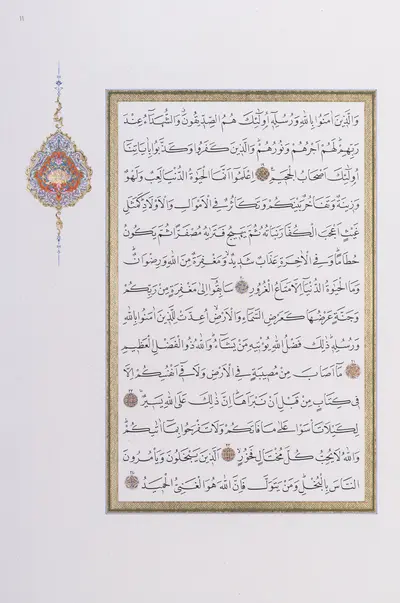 ١١
وَالَّذِينَ اٰمَنُوا بِاللّٰهِ وَرُسُلِهِ اُولٰئِكَ هُمُ الصِّدِّيقُونَ وَالشُّهَدَاءُ عِنْدَ
رَبِّهِمْ لَهُمْ اَجْرُهُمْ وَنُورُهُمْ وَالَّذِينَ كَفَرُوا وَكَذَّبُوا بِاٰيَاتِنَا
اُولٰئِكَ اَصْحَابُ الْجَحِيمِ اِعْلَمُوا اَنَّمَا الْحَيٰوةُ الدُّنْيَا لَعِبٌ وَلَهْوٌ
وَزِينَةٌ وَتَفَاخُرٌ بَيْنَكُمْ وَتَكَاثُرٌ فِي الْاَمْوَالِ وَالْاَوْلَادِ كَمَثَلِ
غَيْثٍ اَعْجَبَ الْكُفَّارَ نَبَاتُهُ ثُمَّ يَهِيجُ فَتَرٰيهُ مُصْفَرًّا ثُمَّ يَكُونُ
حُطَامًا وَفِي الْاٰخِرَةِ عَذَابٌ شَدِيدٌ وَمَغْفِرَةٌ مِنَ اللّٰهِ وَرِضْوَانٌ
وَمَا الْحَيٰوةُ الدُّنْيَا اِلَّا مَتَاعُ الْغُرُورِ سَابِقُوا اِلٰى مَغْفِرَةٍ مِنْ رَبِّكُمْ
وَجَنَّةٍ عَرْضُهَا كَعَرْضِ السَّمَاءِ وَالْاَرْضِ اُعِدَّتْ لِلَّذِينَ اٰمَنُوا بِاللّٰهِ
وَرُسُلِهِ ذٰلِكَ فَضْلُ اللّٰهِ يُؤْتِيهِ مَنْ يَشَاءُ وَاللّٰهُ ذُو الْفَضْلِ الْعَظِيمِ
مَا اَصَابَ مِنْ مُصِيبَةٍ فِي الْاَرْضِ وَلَا فِي اَنْفُسِكُمْ اِلَّا
فِي كِتَابٍ مِنْ قَبْلِ اَنْ نَبْرَاَهَا اِنَّ ذٰلِكَ عَلَى اللّٰهِ يَسِيرٌ
لِكَيْلَا تَاْسَوْا عَلٰى مَا فَاتَكُمْ وَلَا تَفْرَحُوا بِمَا اٰتٰيكُمْ
وَاللّٰهُ لَا يُحِبُّ كُلَّ مُخْتَالٍ فَخُورٍ اَلَّذِينَ يَبْخَلُونَ وَيَاْمُرُونَ
النَّاسَ بِالْبُخْلِ وَمَنْ يَتَوَلَّ فَاِنَّ اللّٰهَ هُوَ الْغَنِيُّ الْحَمِيدُ